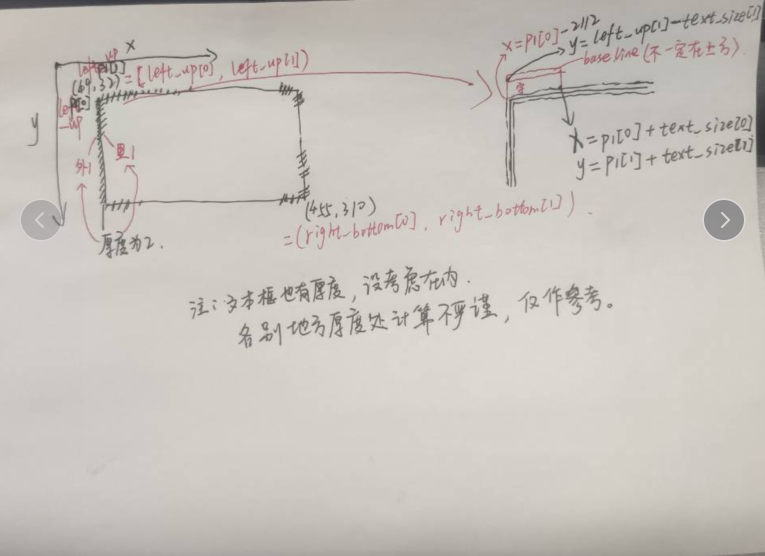 x
y
left_up
(69,32) = (left_up[0], left_up[1])
left_up
外1
里1
厚度为2.
(455,310)
=(right_bottom[0], right_bottom[1]).
x=p1[0]-2//2
y=left_up[1]-text_size[1]
baseline(不一定在上方).
x=p1[0]+text_size[0]
y=p1[1]+text_size[1]
注:文本框也有厚度,没考虑在内.
各别地方厚度处计算不严谨,仅作参考。